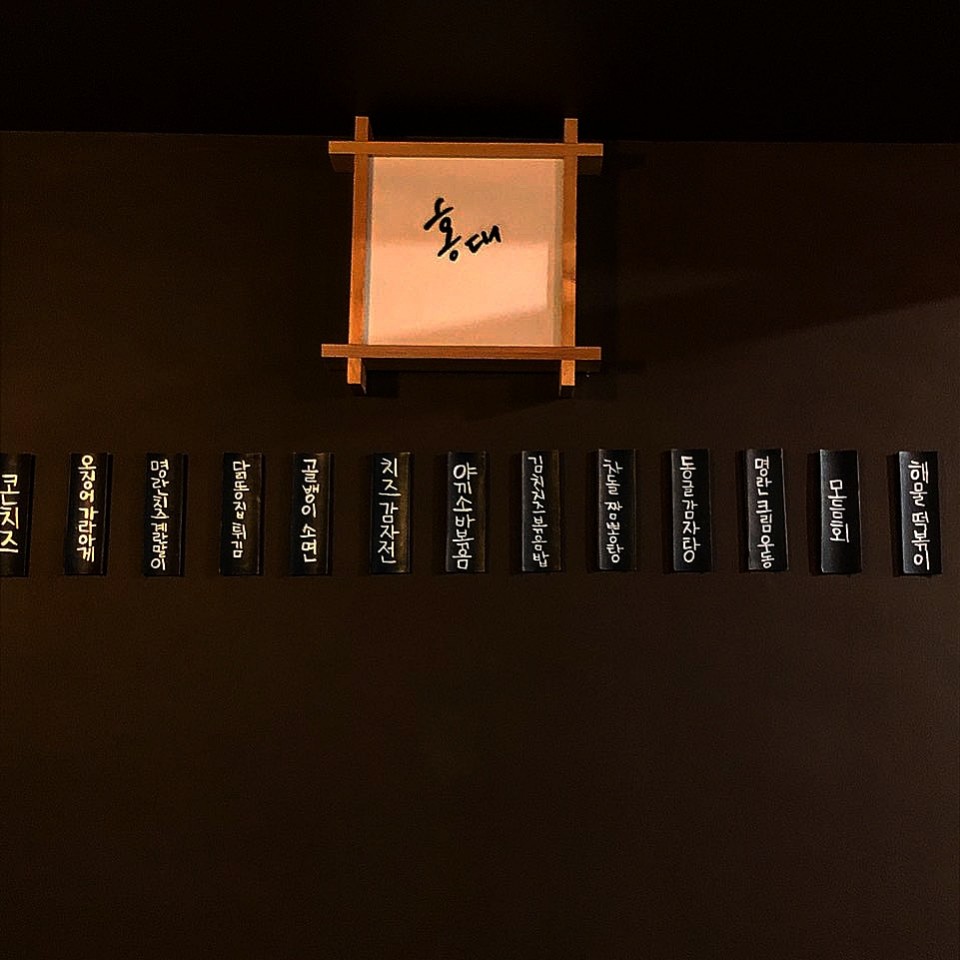 홍대
콘치즈
오징어 가라아게
명란치즈계란말이
닭똥집 튀김
골뱅이 소면
치즈감자전
야끼소바볶음
김치치즈볶음밥
차돌 짬뽕탕
동굴감자탕
명란크림우동
모듬회
해물 떡볶이